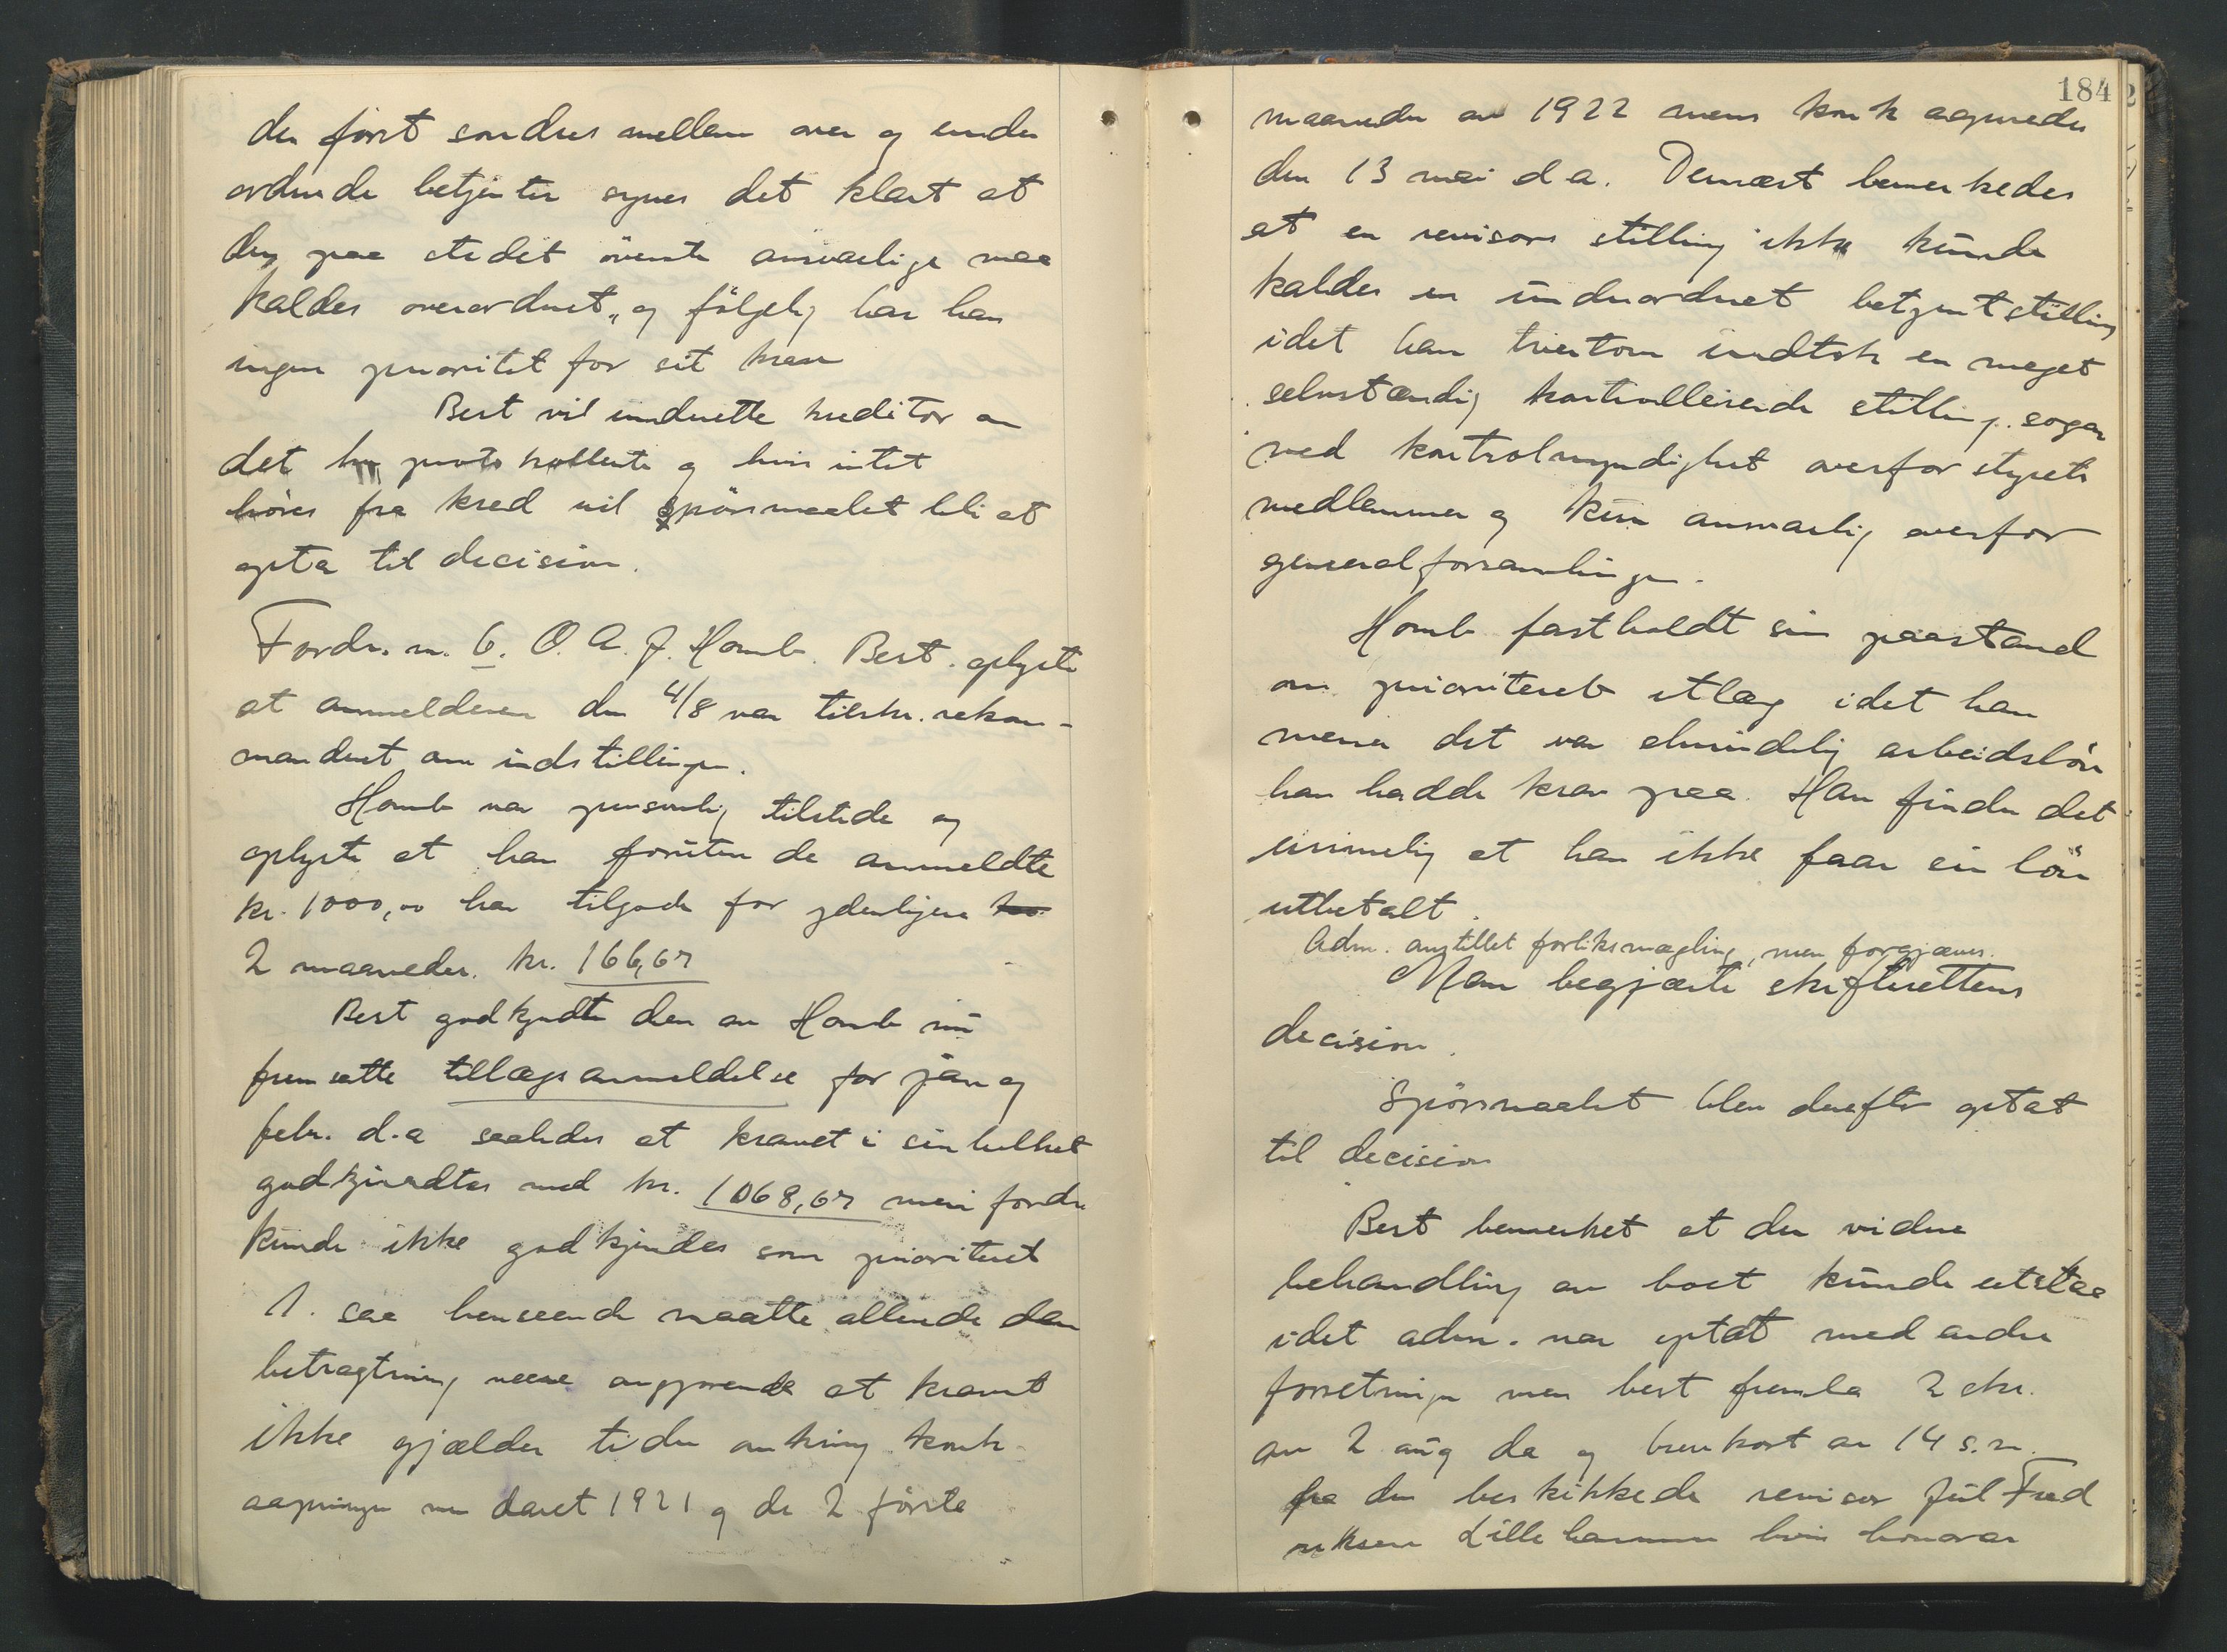 der först sondres mellem over og under
ordnede betjenter synes det klart at
den paa stedet överste ansvarlige maa
kaldes overordnet, og fölgelig har han
ingen prioritet for sit krav
Best vil underrette kreditor om
det protokollerte og hvis intet
höres fra kred vil spörsmaalet bli at
opta til decision.
Fordr. nr. 6. O. A. J. Homb. Best. oplyste
at anmelderen den 4/8 var tilskr. rekom-
mandert om indstillingen.
Homb var personlig tilstede og
oplyste at han foruten de anmeldte
kr. 1000,00 har tilgode for yderligere
2 maaneder. kr. 166,67
Best godkjendte den av Homb nu
fremsatte tillægsanmeldelse for jan og
febr. d.a saaledes at kravet i sin helhet
godkjendtes med kr. 1068,67 men fordr
kunde ikke godkjendes som prioritert
I saa henseende maatte allerede den
betragtning være avgjörende at kravet
ikke gjælder tiden omkring konk
aapningen men aaret 1921 og de 2 förste
184
maaneder av 1922 mens konk aapnedes
den 13 mai d a. Dernæst bemerkedes
at en revisors stilling ikke kunde
kaldes en underordnet betjentstilling
idet han tvertom indtok en meget
selvstændig kontrollerende stilling. sogar
med kontrolmyndighet overfor styrets
medlemmer og kun ansvarlig overfor
generalforsamlingen.
Homb fastholdt sin paastand
om prioritert utlæg idet han
mener det var almindelig arbeidslön
han hadde krav paa. Han finder det
urimelig at han ikke faar sin lön
utbetalt.
Adm. anstillet forliksmægling, men forgjæves.
Man begjærte skifterettens
decision.
Spörsmaalet blev derefter optat
til decision
Best bemerket at den videre
behandling av boet kunde utstaa
idet adm. var optat med andre
forretninger men best fremla 2 skr.
av 2 aug da og brevkort av 14 s.m.
fra den beskikkede revisor Jul Fred
riksen Lillehammer hvis honorar